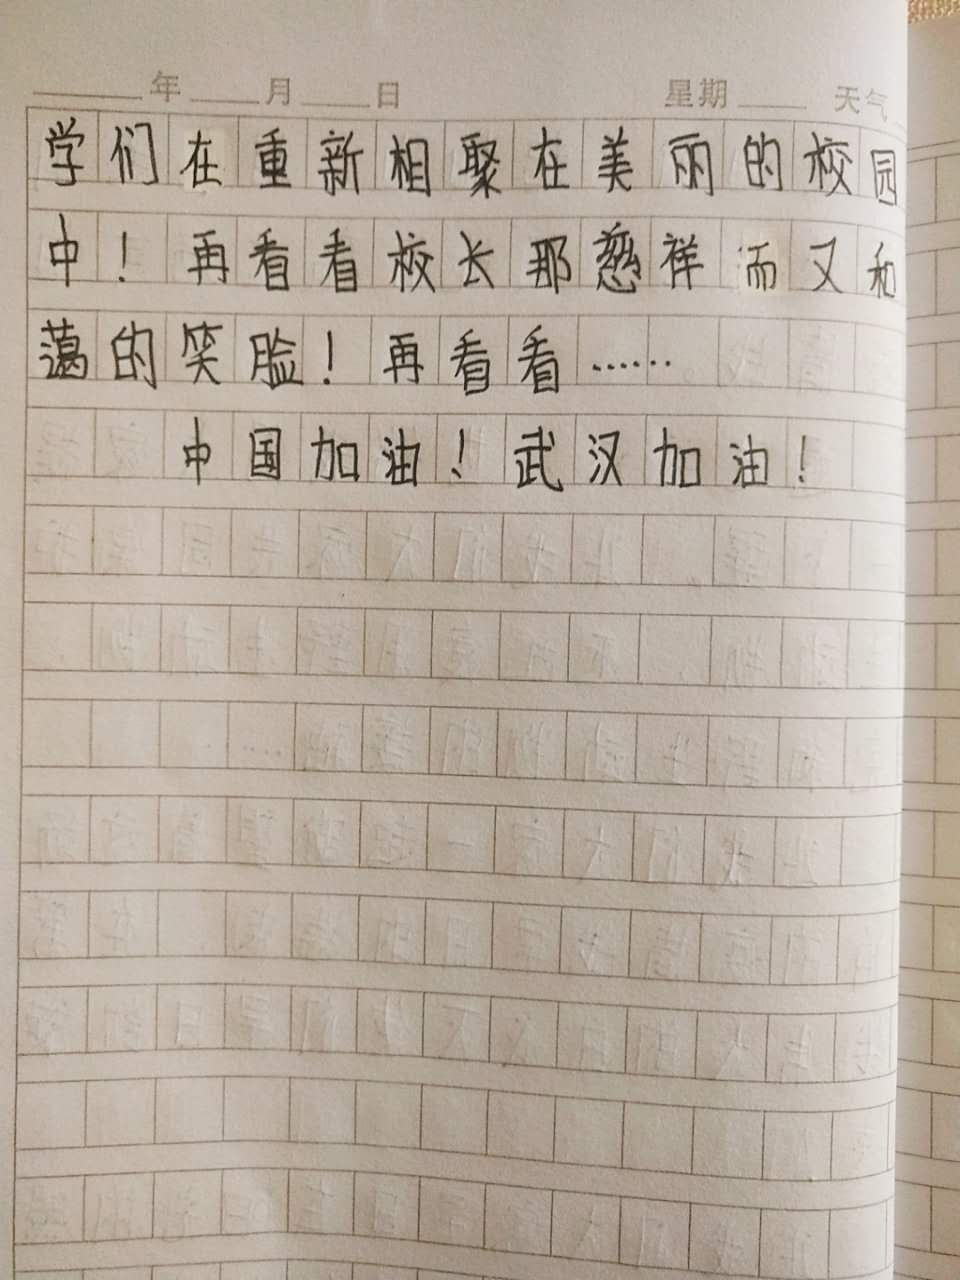 年 月 日 星期 天气
学们在重新相聚在美丽的校园
中！再看看校长那慈祥而又和
蔼的笑脸！再看看……
中国加油！武汉加油！